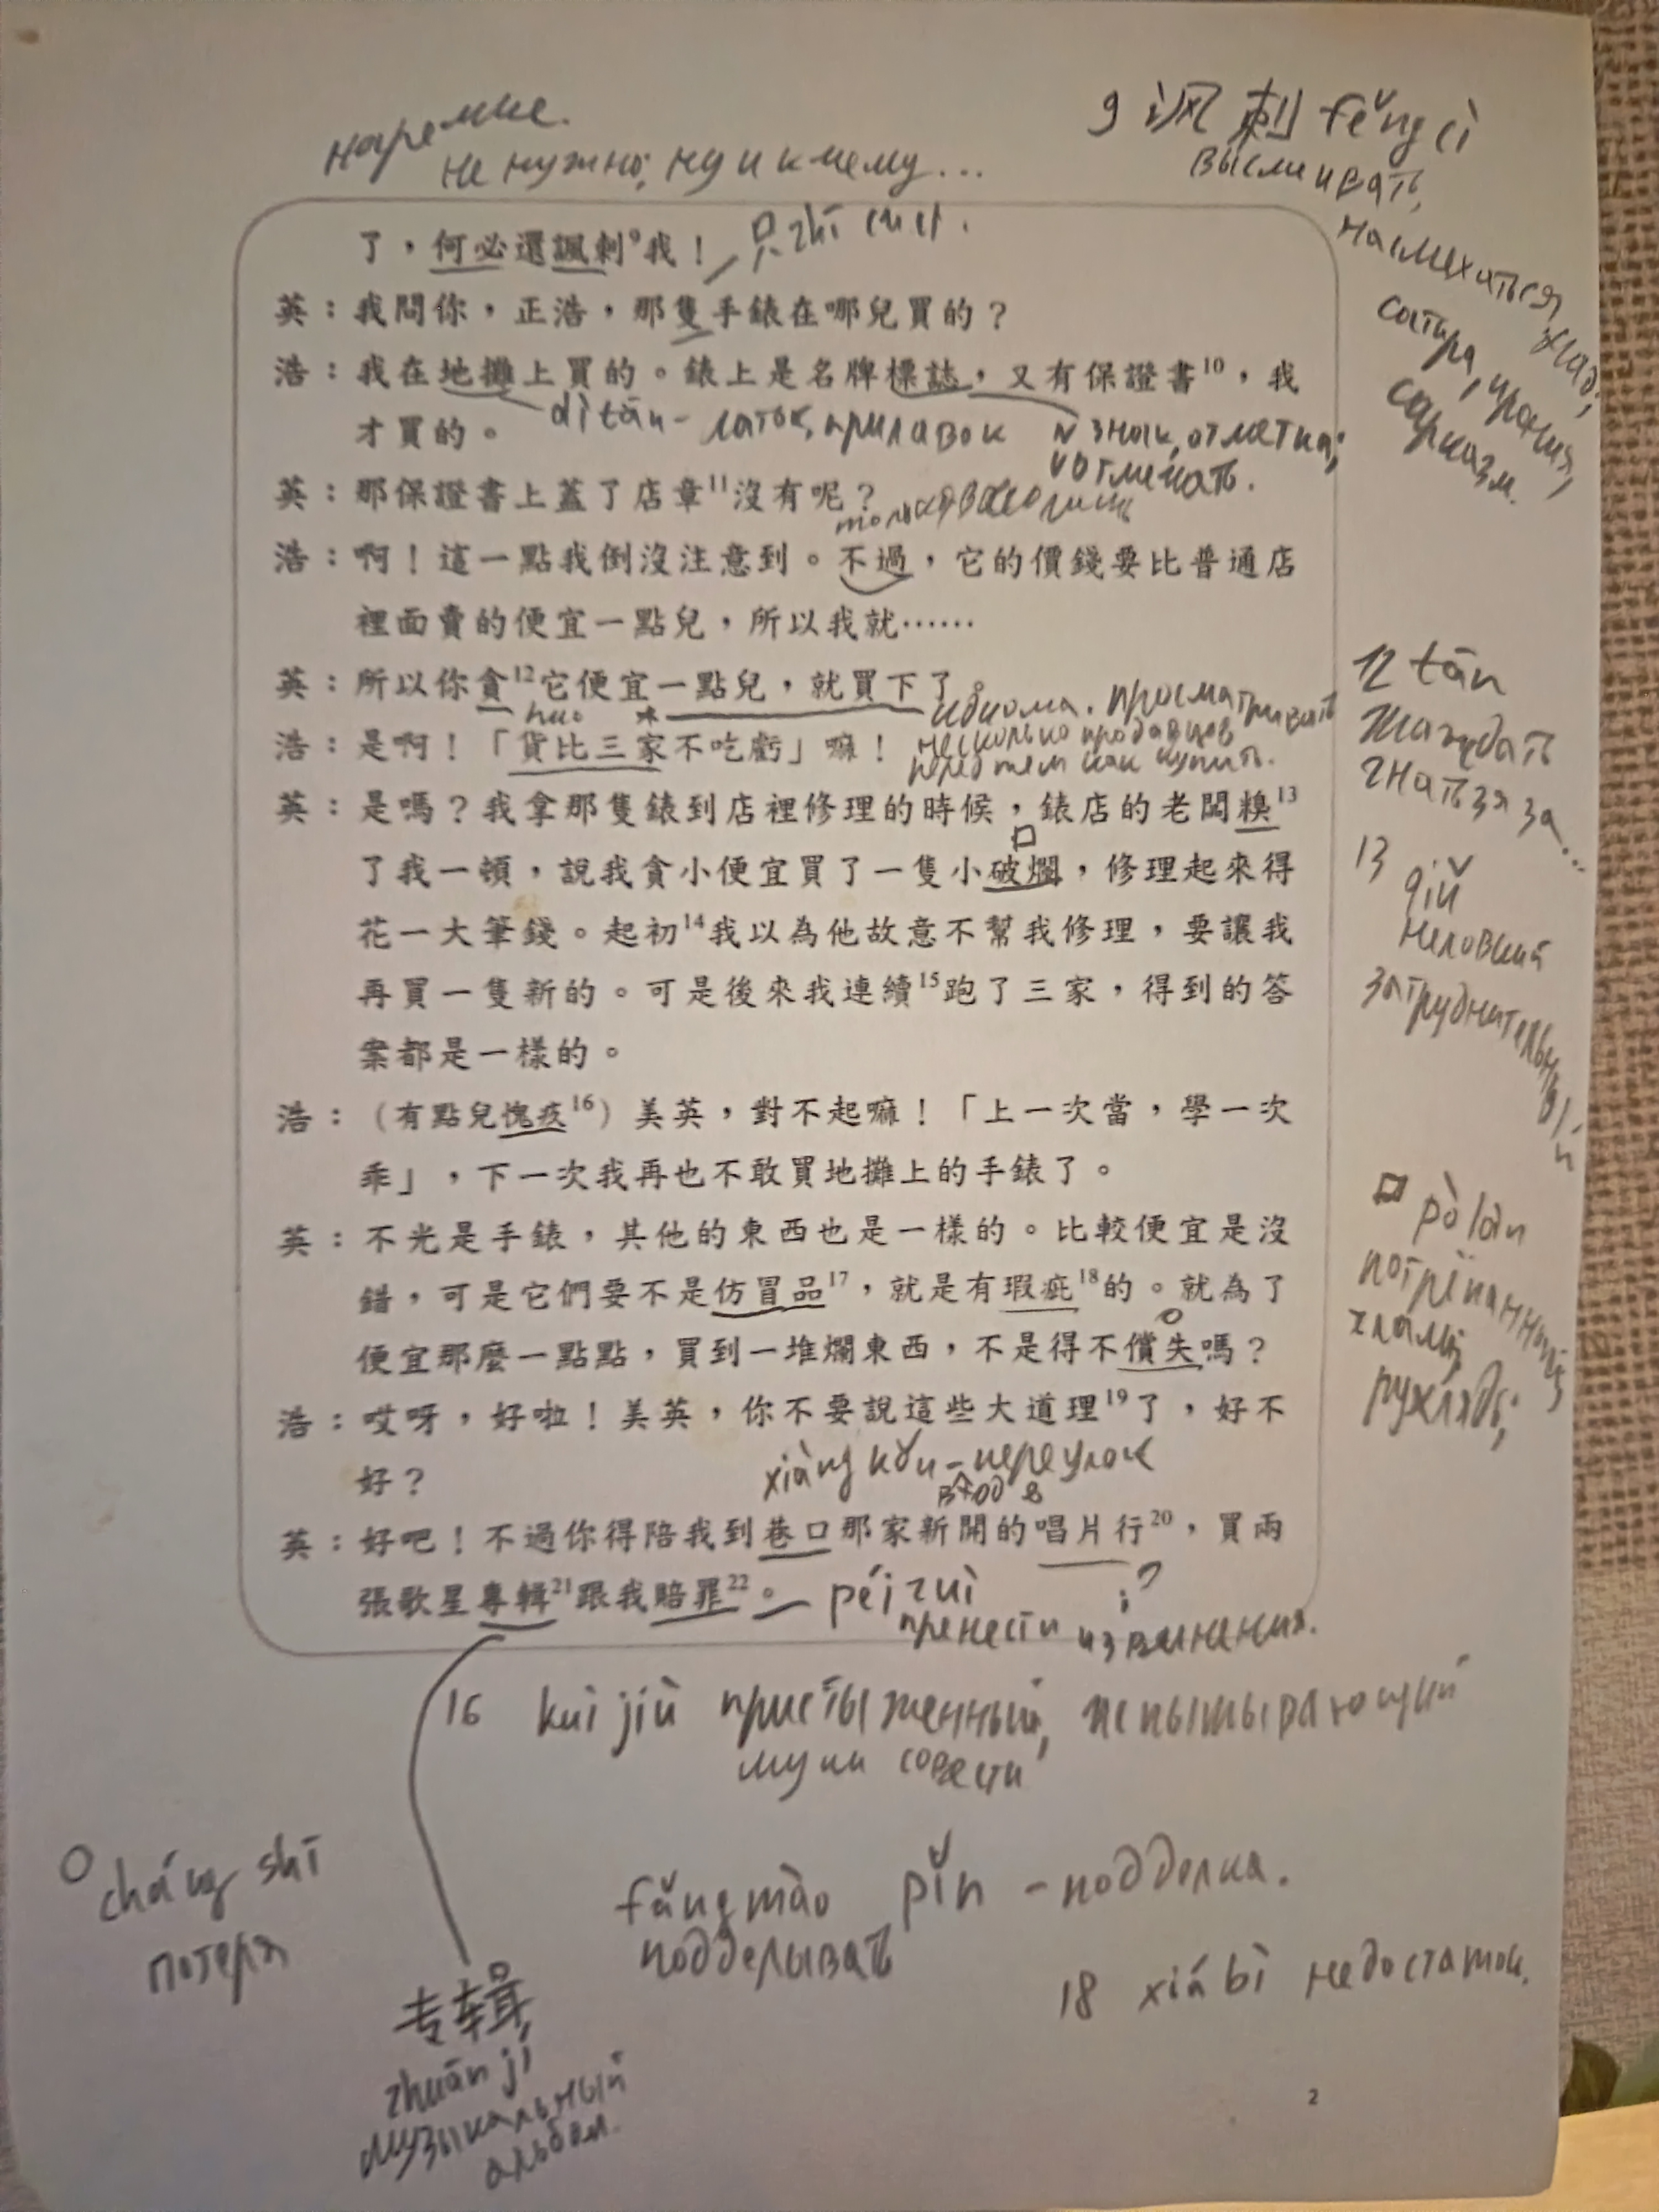 наречие.
не нужно; ну и к чему...
9 讽刺 fěng cì
высмеивать,
насмехаться
сатира, ирония,
сарказм.
了，何必還諷刺⁹我！
只 zhī счсл.
英：我問你，正浩，那隻手錶在哪兒買的？
浩：我在地攤上買的。錶上是名牌標誌，又有保證書¹⁰，我
才買的。
dì tān - лоток, прилавок
N знак, отметка;
V отмечать.
英：那保證書上蓋了店章¹¹沒有呢？
浩：啊！這一點我倒沒注意到。不過，它的價錢要比普通店
裡面賣的便宜一點兒，所以我就……
英：所以你貪¹²它便宜一點兒，就買下了。
идиома. просматривать
несколько продавцов
перед тем как купить.
浩：是啊！「貨比三家不吃虧」嘛！
12 tān
жаждать
гнаться за...
英：是嗎？我拿那隻錶到店裡修理的時候，錶店的老闆糗¹³
了我一頓，說我貪小便宜買了一隻小破爛，修理起來得
花一大筆錢。起初¹⁴我以為他故意不幫我修理，要讓我
再買一隻新的。可是後來我連續¹⁵跑了三家，得到的答
案都是一樣的。
13 qiǔ
неловкий
затруднительный
浩：（有點兒愧疚¹⁶）美英，對不起嘛！「上一次當，學一次
乖」，下一次我再也不敢買地攤上的手錶了。
英：不光是手錶，其他的東西也是一樣的。比較便宜是沒
錯，可是它們要不是仿冒品¹⁷，就是有瑕疵¹⁸的。就為了
便宜那麼一點點，買到一堆爛東西，不是得不償失嗎？
pò làn
потрёпанный,
хлам,
рухлядь;
浩：哎呀，好啦！美英，你不要說這些大道理¹⁹了，好不
好？
xiàng kǒu - переулок
вход в
英：好吧！不過你得陪我到巷口那家新開的唱片行²⁰，買兩
張歌星專輯²¹跟我賠罪²²。
péi zuì
принести извинения.
16 kuì jiù пристыженный, испытывающий
муки совести
cháng shī
потеря
fǎng mào pǐn - подделка.
подделывать
18 xiá bì недостаток.
专辑
zhuān jí
музыкальный
альбом.
2